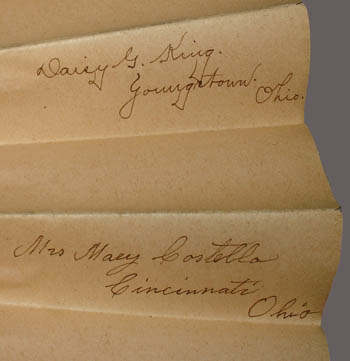 Daisy G. King.
Youngstown.
Ohio.
Mrs Macy Costello
Cincinnati
Ohio